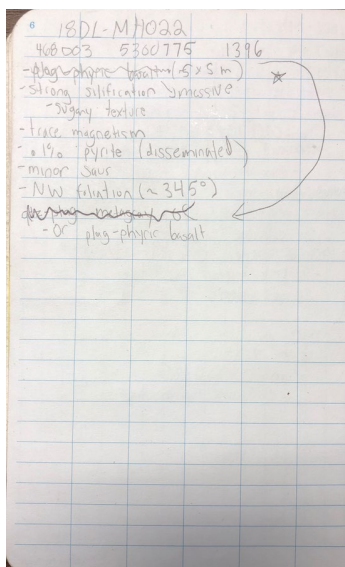 6
18DL-MH022
468003 5300775 1396
-plag-phyric basalt (~5x5m)
-strong silification massive
-sugary texture
-trace magnetism
-.1% pyrite (disseminated)
-minor saus
-NW foliation (~345°)
-Or plag-phyric basalt